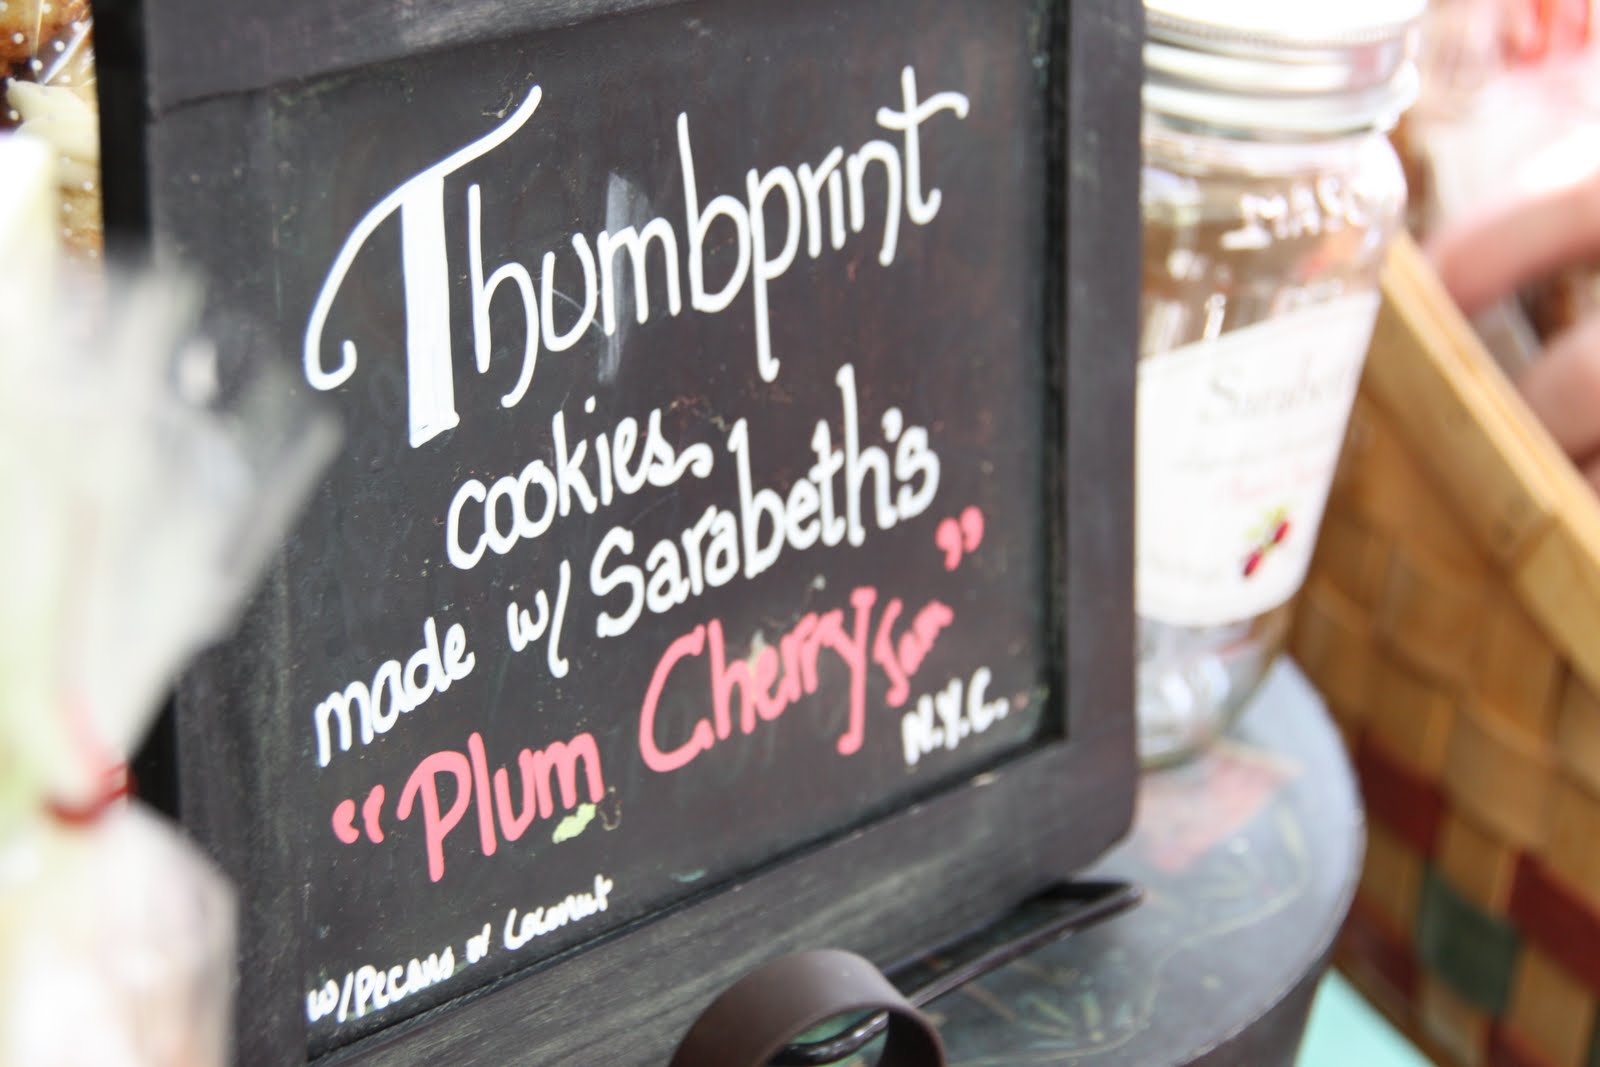 Thumbprint
cookies
made w/ Sarabeth's
"Plum Cherry Jam"
N.Y.C.
w/Pecans w/ Coconut